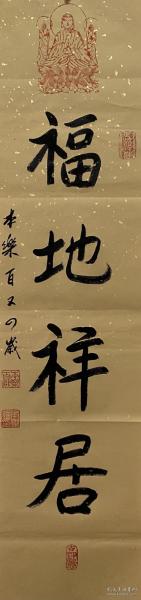 福地祥居
本樂百又四歲